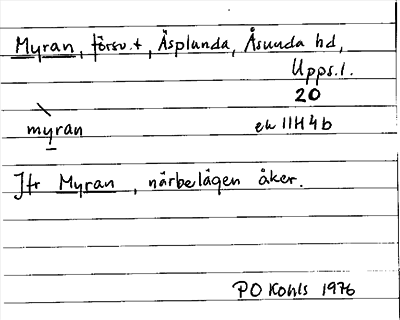 Myran, försv. t, Äsplunda, Åsunda hd,
Upps. l.
20
myran ek 11H4b
Jfr Myran, närbelägen åker.
PO Kohls 1976